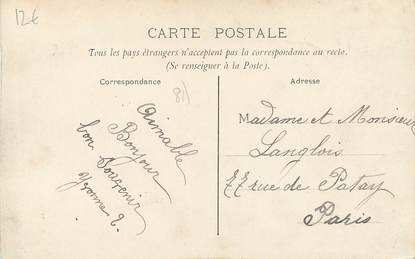 12€
CARTE POSTALE
Tous les pays étrangers n'acceptent pas la correspondance au recto.
(Se renseigner à la Poste).
Correspondance
Adresse
Aimable
Bonjour
bon Souvenir
Yvonne L.
Madame et Monsieur
Langlois
77 rue de Patay
Paris